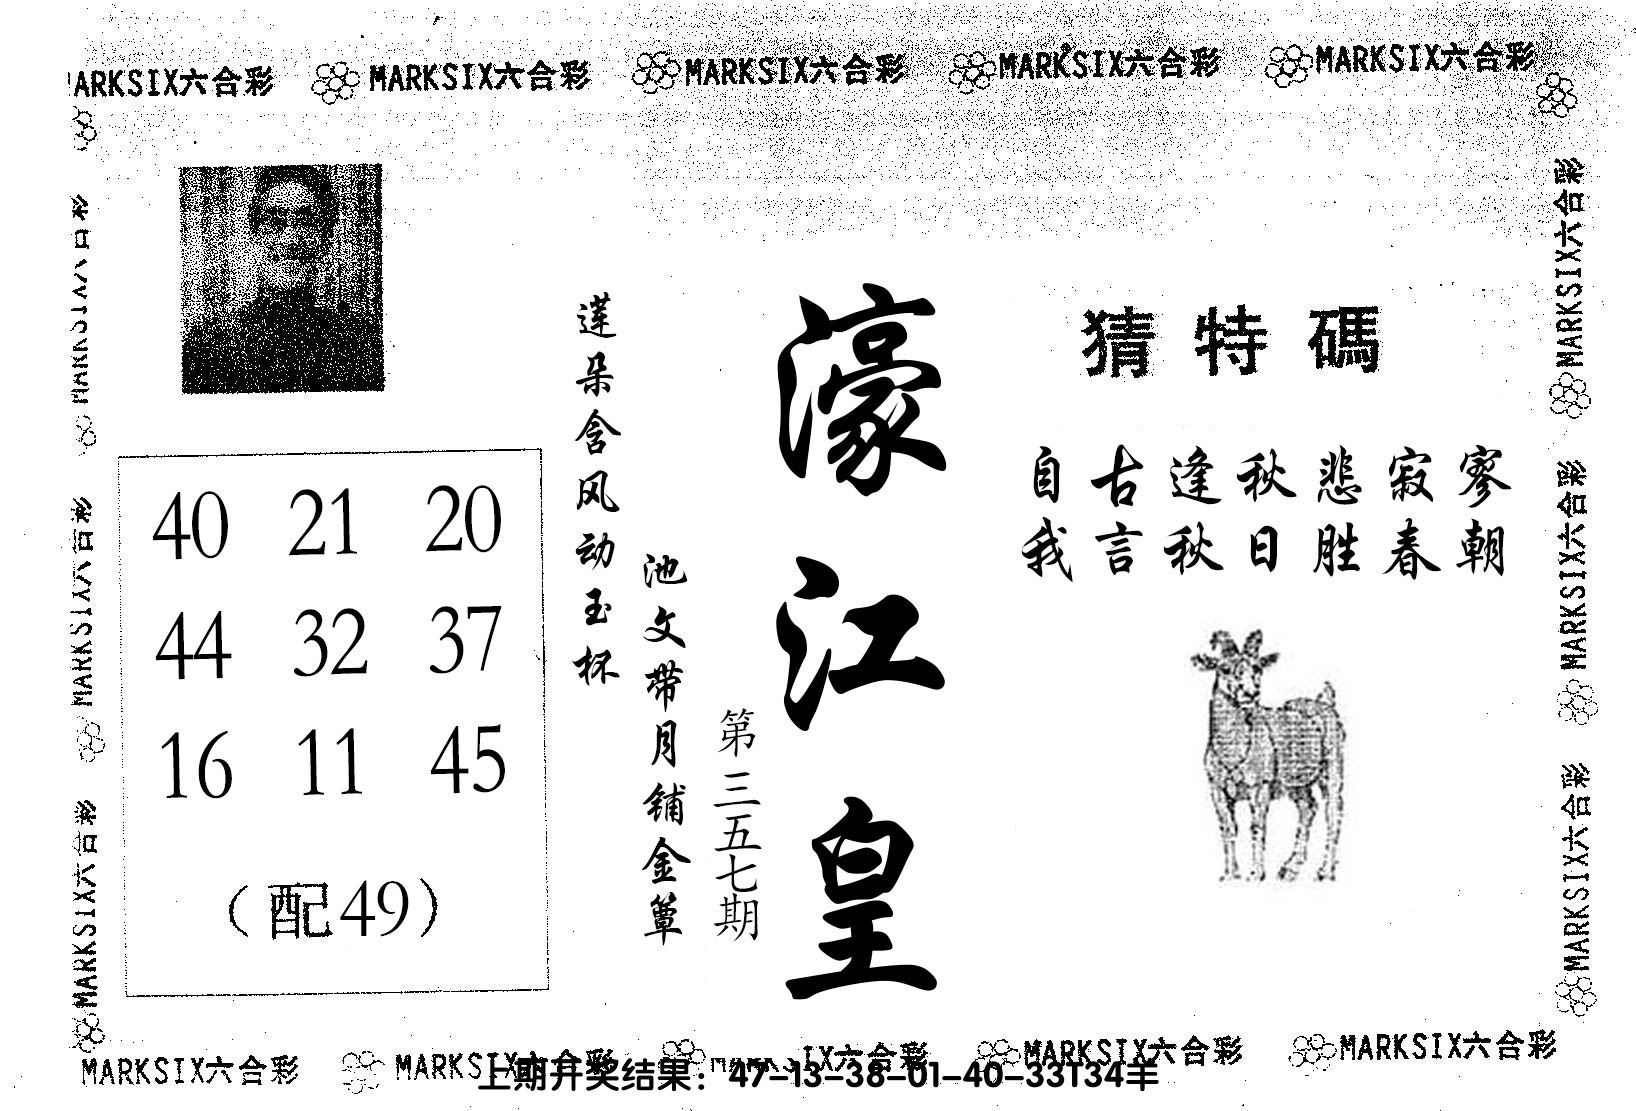 MARKSIX六合彩 MARKSIX六合彩 MARKSIX六合彩 MARKSIX六合彩 MARKSIX六合彩
猜特碼
自古逢秋悲寂寥
我言秋日胜春朝
濠江皇
第三五七期
莲朵含风动玉杯
池文带月铺金簟
40 21 20
44 32 37
16 11 45
（配49）
MARKSIX六合彩
MARKSIX六合彩
MARKSIX六合彩
MARKSIX六合彩
MARKSIX六合彩
MARKSIX六合彩
MARKSIX六合彩 MARKSIX六合彩 MARKSIX六合彩 MARKSIX六合彩 MARKSIX六合彩
上期开奖结果：47-13-38-01-40-33T34羊